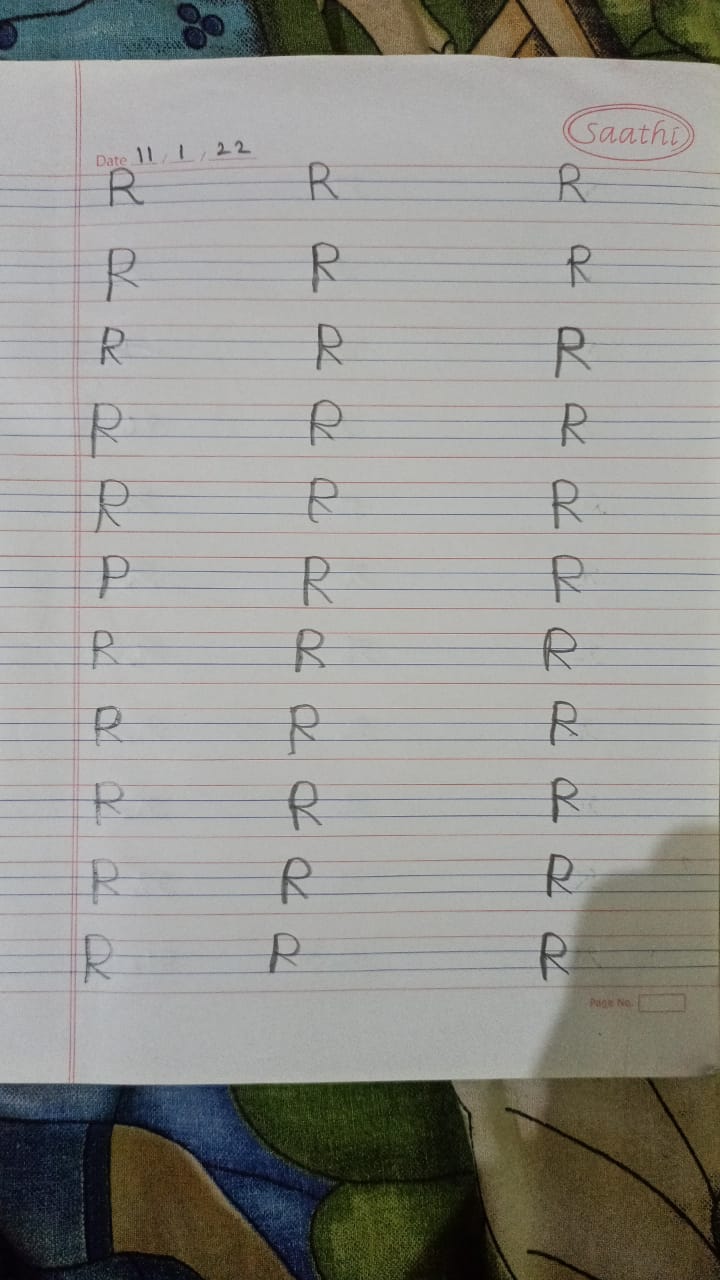 Saathi
Date 11, 1, 22
R R R
R R R
R R R
R R R
R R R
P R R
R R R
R R R
R R R
R R R
R R R
Page No.